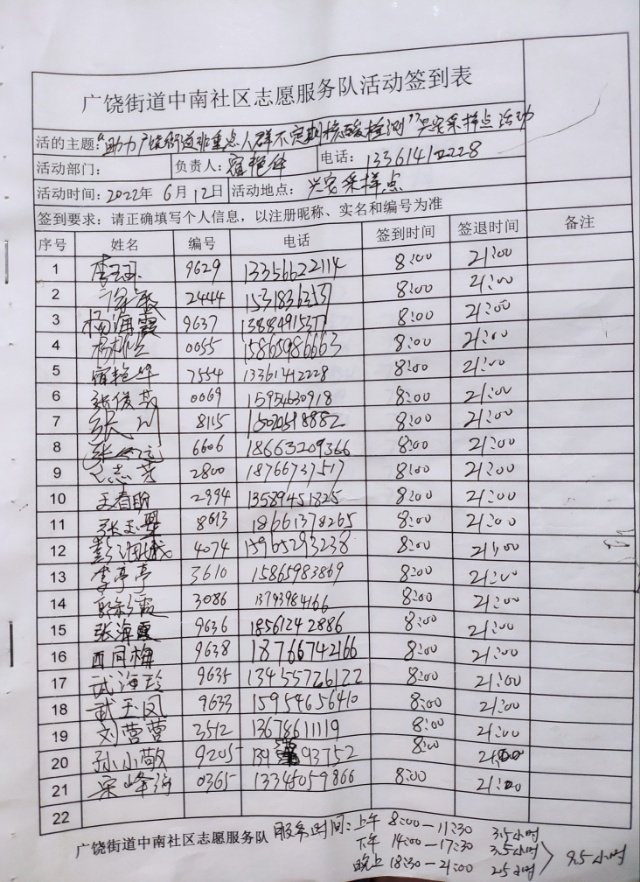 广饶街道中南社区志愿服务队活动签到表
活的主题:"助力广饶街道非重点人群不定期核酸检测"兴宏采样点活动
活动部门: 负责人:宿艳华 电话:13361412228
活动时间:2022年6月12日 活动地点:兴宏采样点
签到要求:请正确填写个人信息,以注册昵称、实名和编号为准
序号 姓名 编号 电话 签到时间 签退时间 备注
1 9629 13356622114 8:00 21:00
2 2444 8:00 21:00
3 杨海霞 9637 8:00 21:00
4 0055 15865986663 8:00 21:00
5 宿艳华 7554 13361412228 8:00 21:00
6 张俊 0069 15954630918 8:00 21:00
7 8115 8:00 21:00
8 6606 18663209366 8:00 21:00
9 志芳 2800 18766737517 8:00 21:00
10 王春明 2994 13589451825 8:00 21:00
11 张玉 8613 18661378265 8:00 21:00
12 4074 15965293238 8:00 21:00
13 李亭亭 3610 15865983869 8:00 21:00
14 3086 13793984166 8:00 21:00
15 张海霞 9636 18561242886 8:00 21:00
16 西同梅 9638 18766742166 8:00 21:00
17 武海玲 9635 13455726122 8:00 21:00
18 武玉凤 9633 15954656410 8:00 21:00
19 刘营营 3512 13678611119 8:00 21:00
20 孙小敬 9205 8:00 21:00
21 0365 13345057866 8:00 21:00
22
广饶街道中南社区志愿服务队 服务时间:上午 8:00—11:30 3.5小时
下午 14:00—17:30 3.5小时
晚上 18:30—21:00 2.5小时 9.5小时